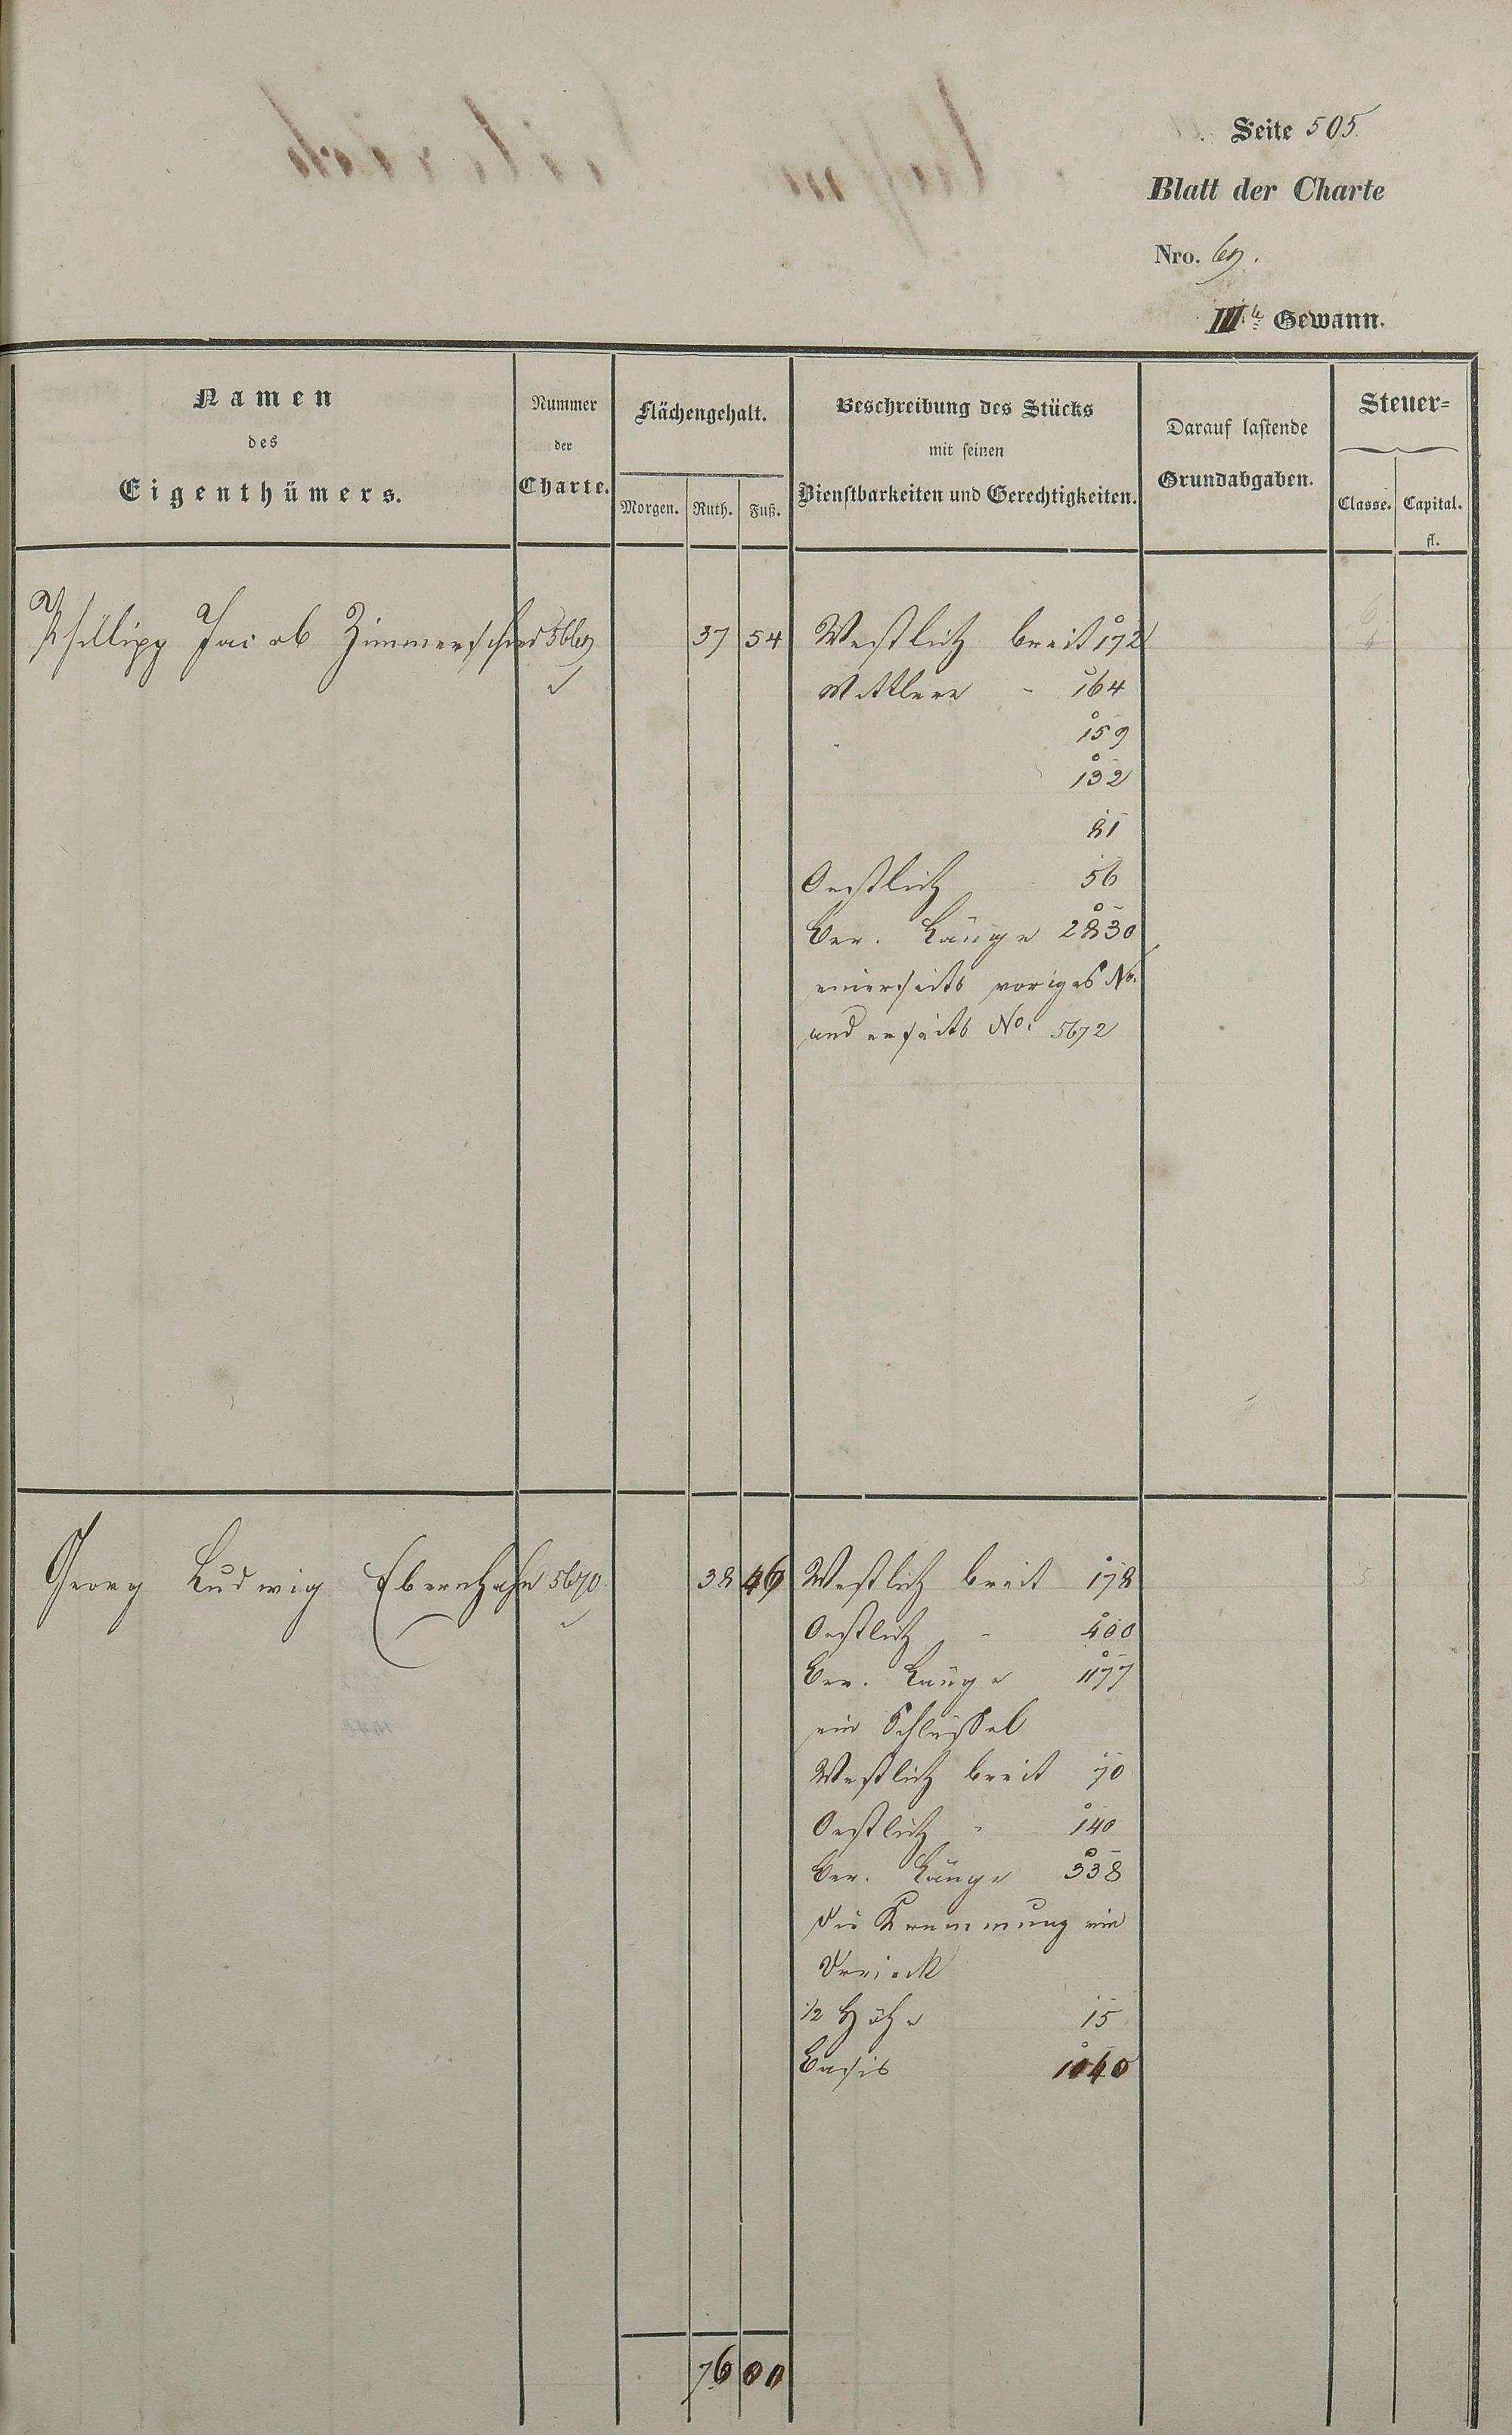 Seite 505
Blatt der Charte
Nro. 69.
IIIte Gewann.
Namen
des
Eigenthümers.
Nummer
der
Charte.
Flächengehalt.
Morgen. Ruth. Fuß.
Beschreibung des Stücks
mit seinen
Dienstbarkeiten und Gerechtigkeiten.
Darauf lastende
Grundabgaben.
Steuer=
Classe. Capital.
fl.
Phillipp Jacob Zimmerschied 5669 37 54 Westlich breit 172
Mittlere - 164
159
132
81
Oestlich 56
Ber. Länge 2830
einerseits voriges No.
anderseits No: 5672
Georg Ludwig Ebernhahn 5670 38 46 Westlich breit 178
Oestlich - 400
Ber. Länge 1177
ein Schlüssel
Westlich breit 70
Oestlich " 140
Ber. Länge 338
die Krummung ein
Dreieck
1/2 Höhe 15
Basis 1040
5
76 00